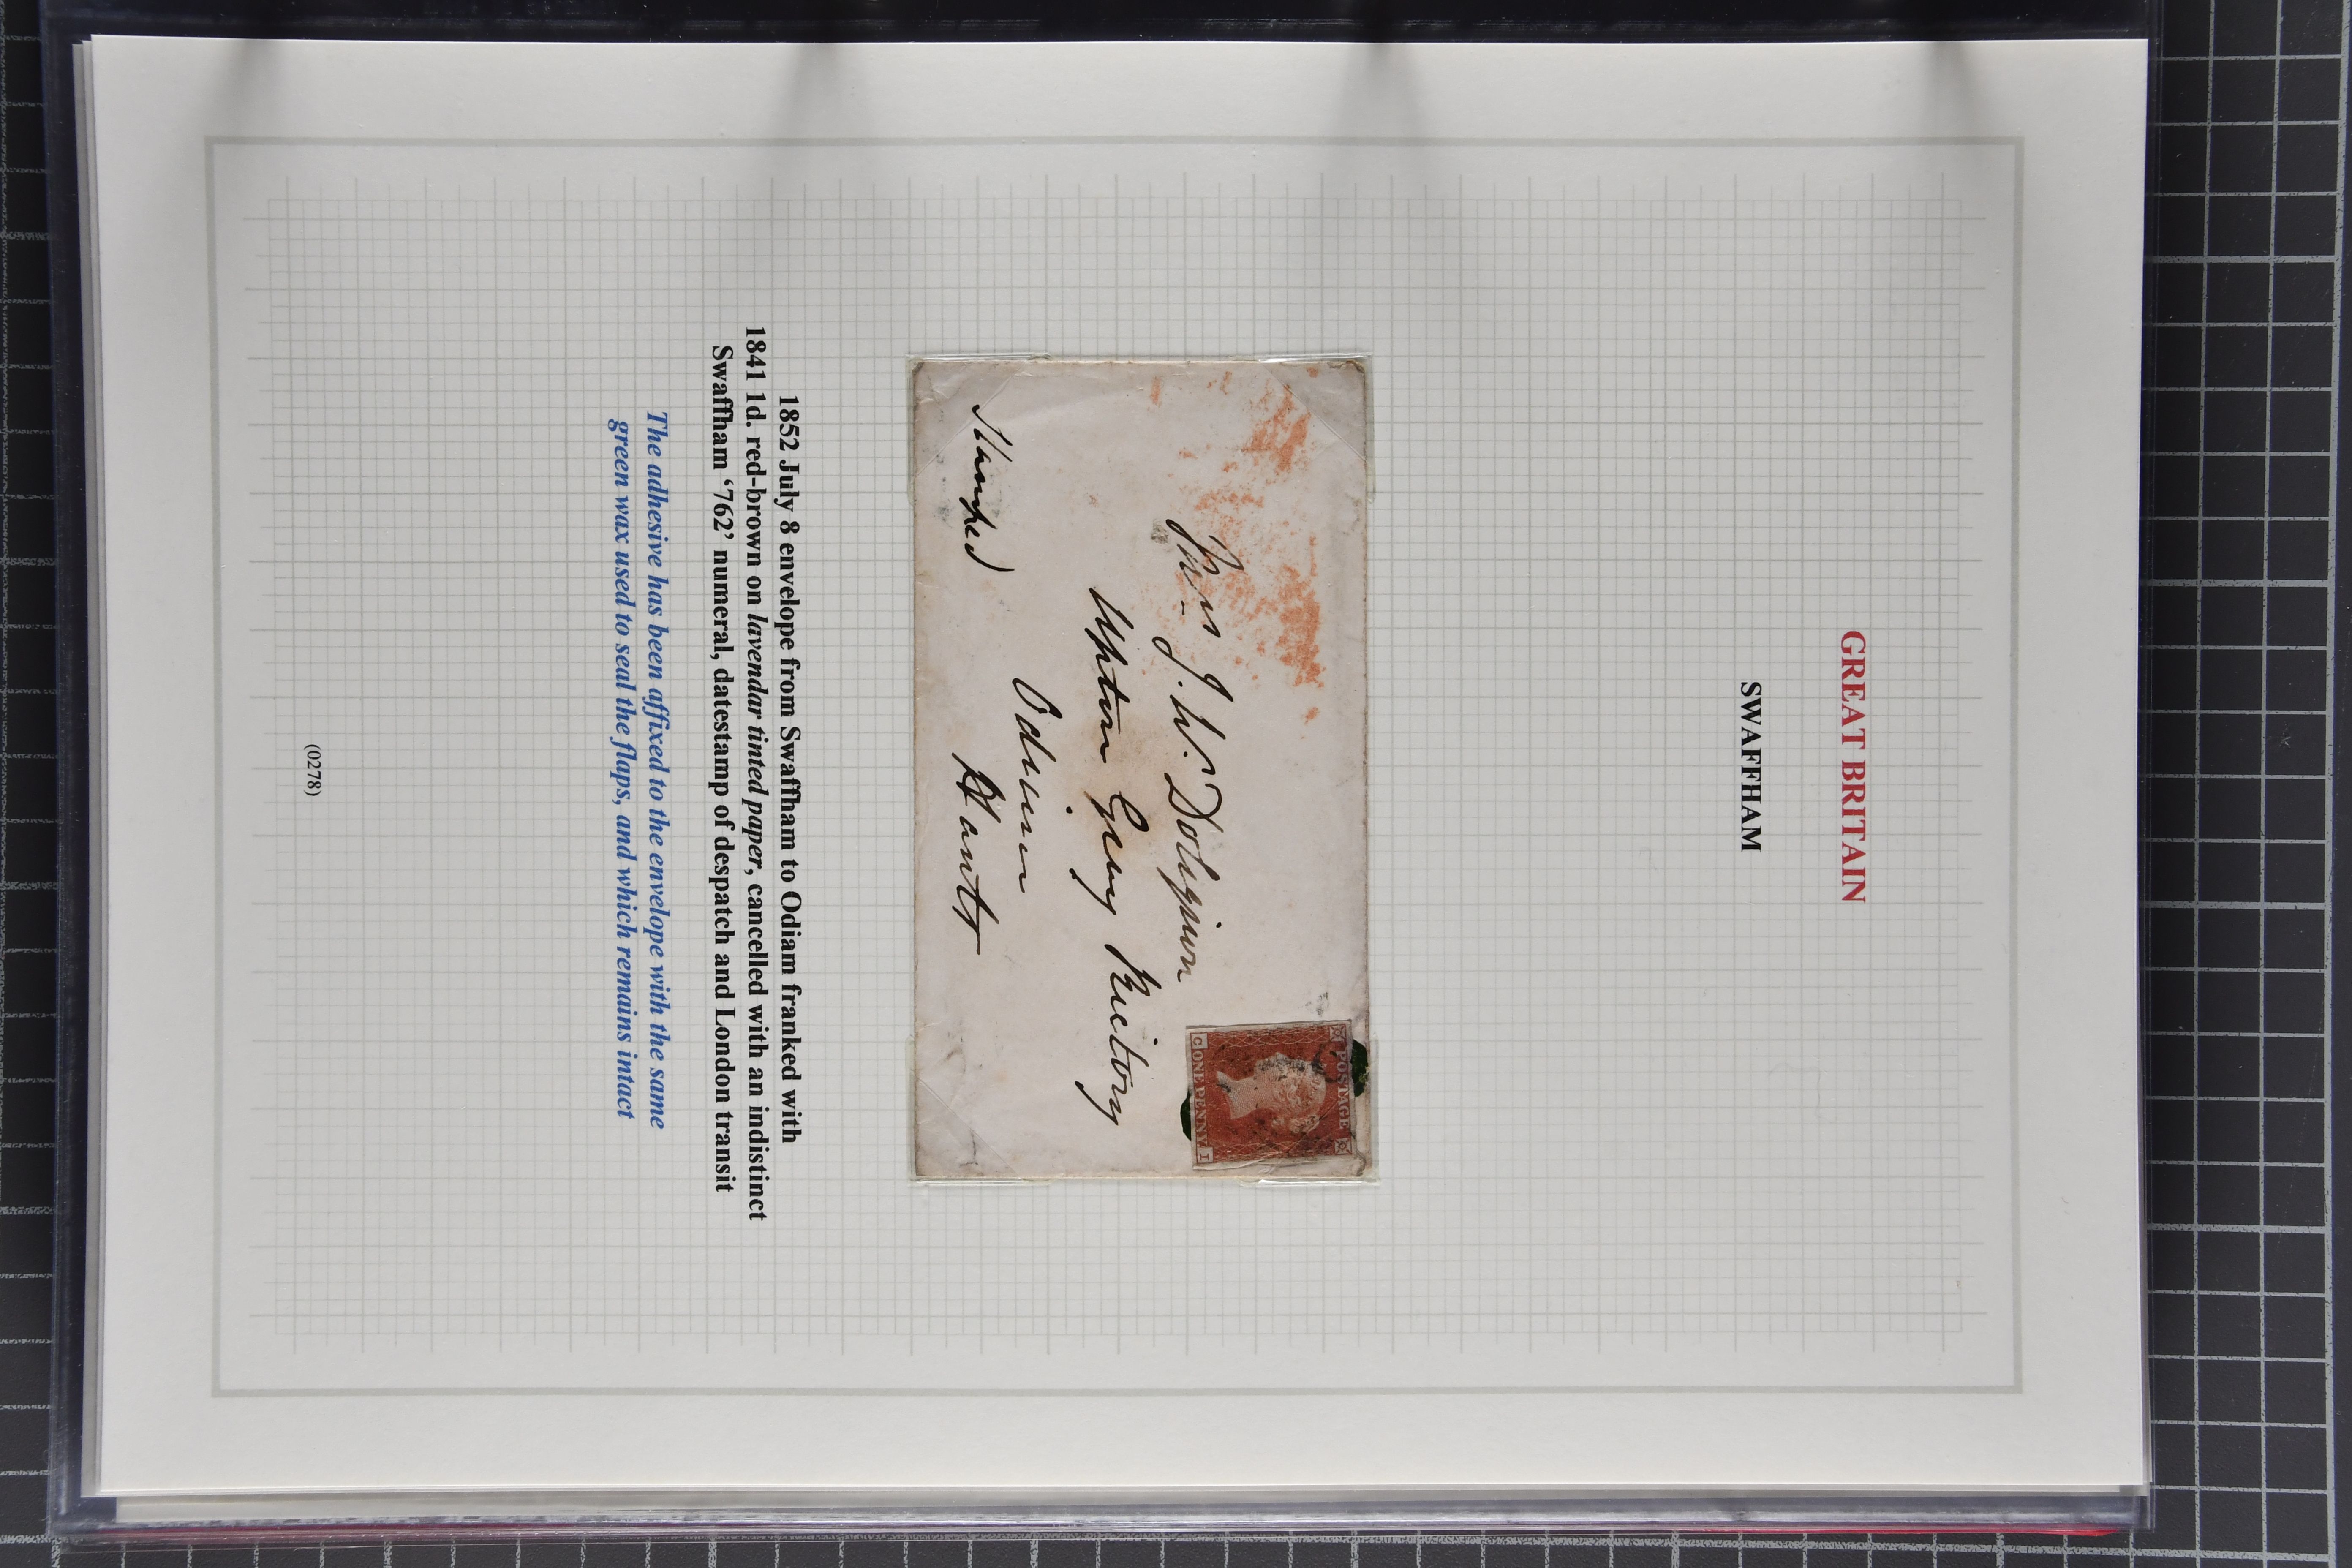 GREAT BRITAIN
SWAFFHAM
POSTAGE
ONE PENNY
C I
J. W.
Upton Grey Rectory
Odiam
Hants
Stamped
1852 July 8 envelope from Swaffham to Odiam franked with
1841 1d. red-brown on lavendar tinted paper, cancelled with an indistinct
Swaffham ‘762’ numeral, datestamp of despatch and London transit
The adhesive has been affixed to the envelope with the same
green wax used to seal the flaps, and which remains intact
(0278)